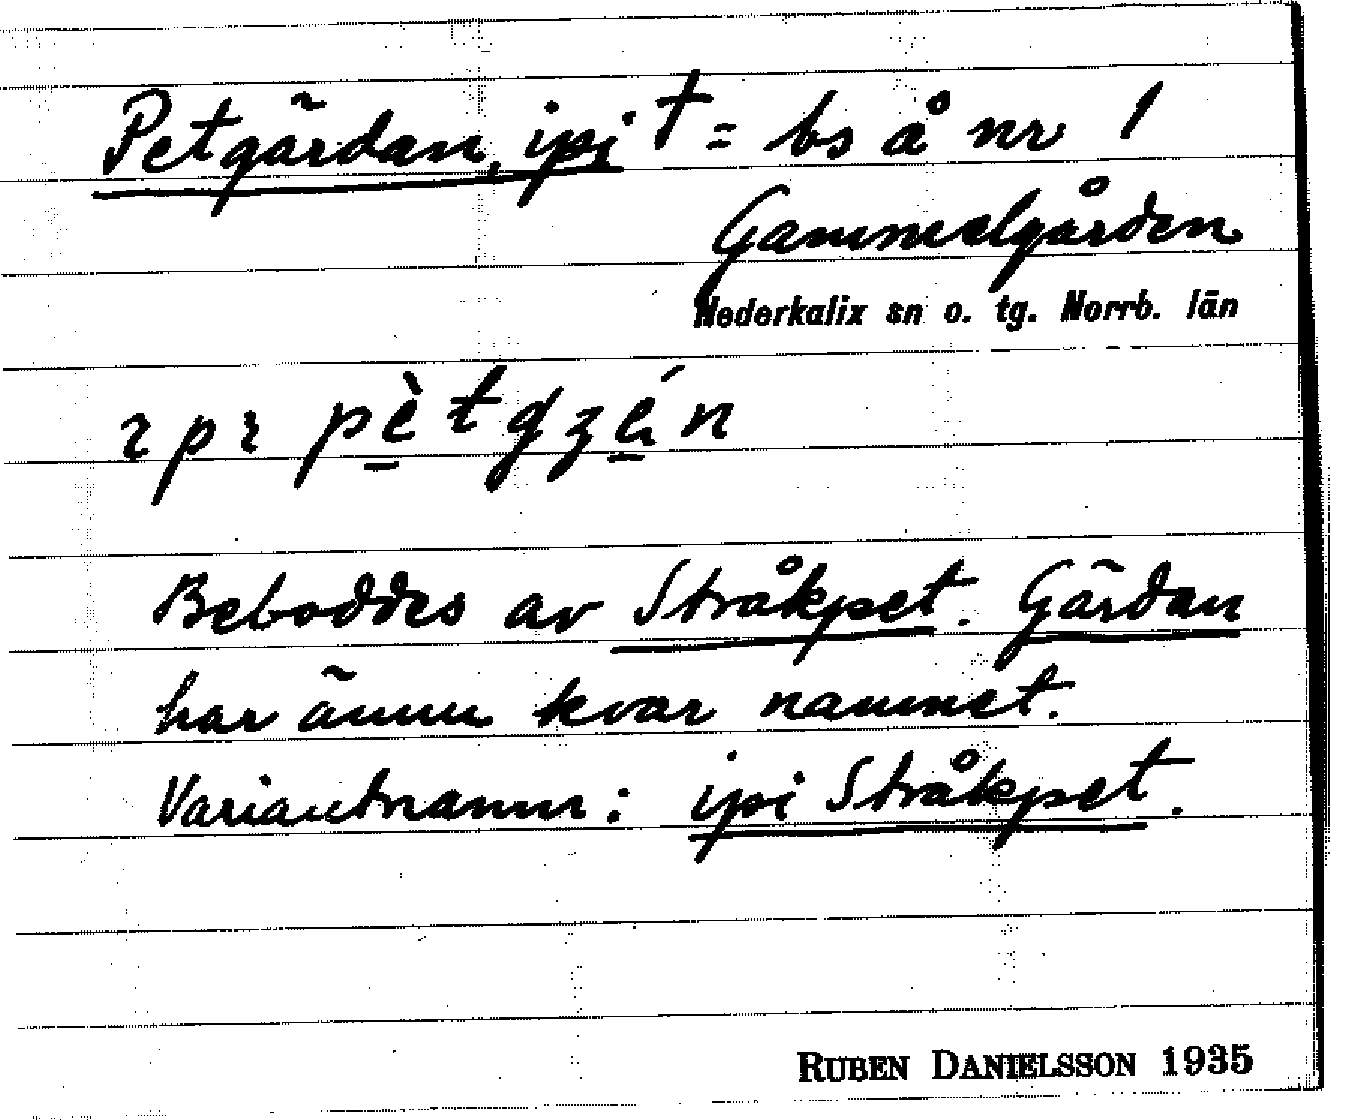 Petgärdan, ipi † = bs å nr 1
Gammelgården
Nederkalix sn o. tg. Norrb. län
Beboddes av Stråkpet. Gärdan
har ännu kvar namnet.
Variantnamn: ipi Stråkpet.
RUBEN DANIELSSON 1935